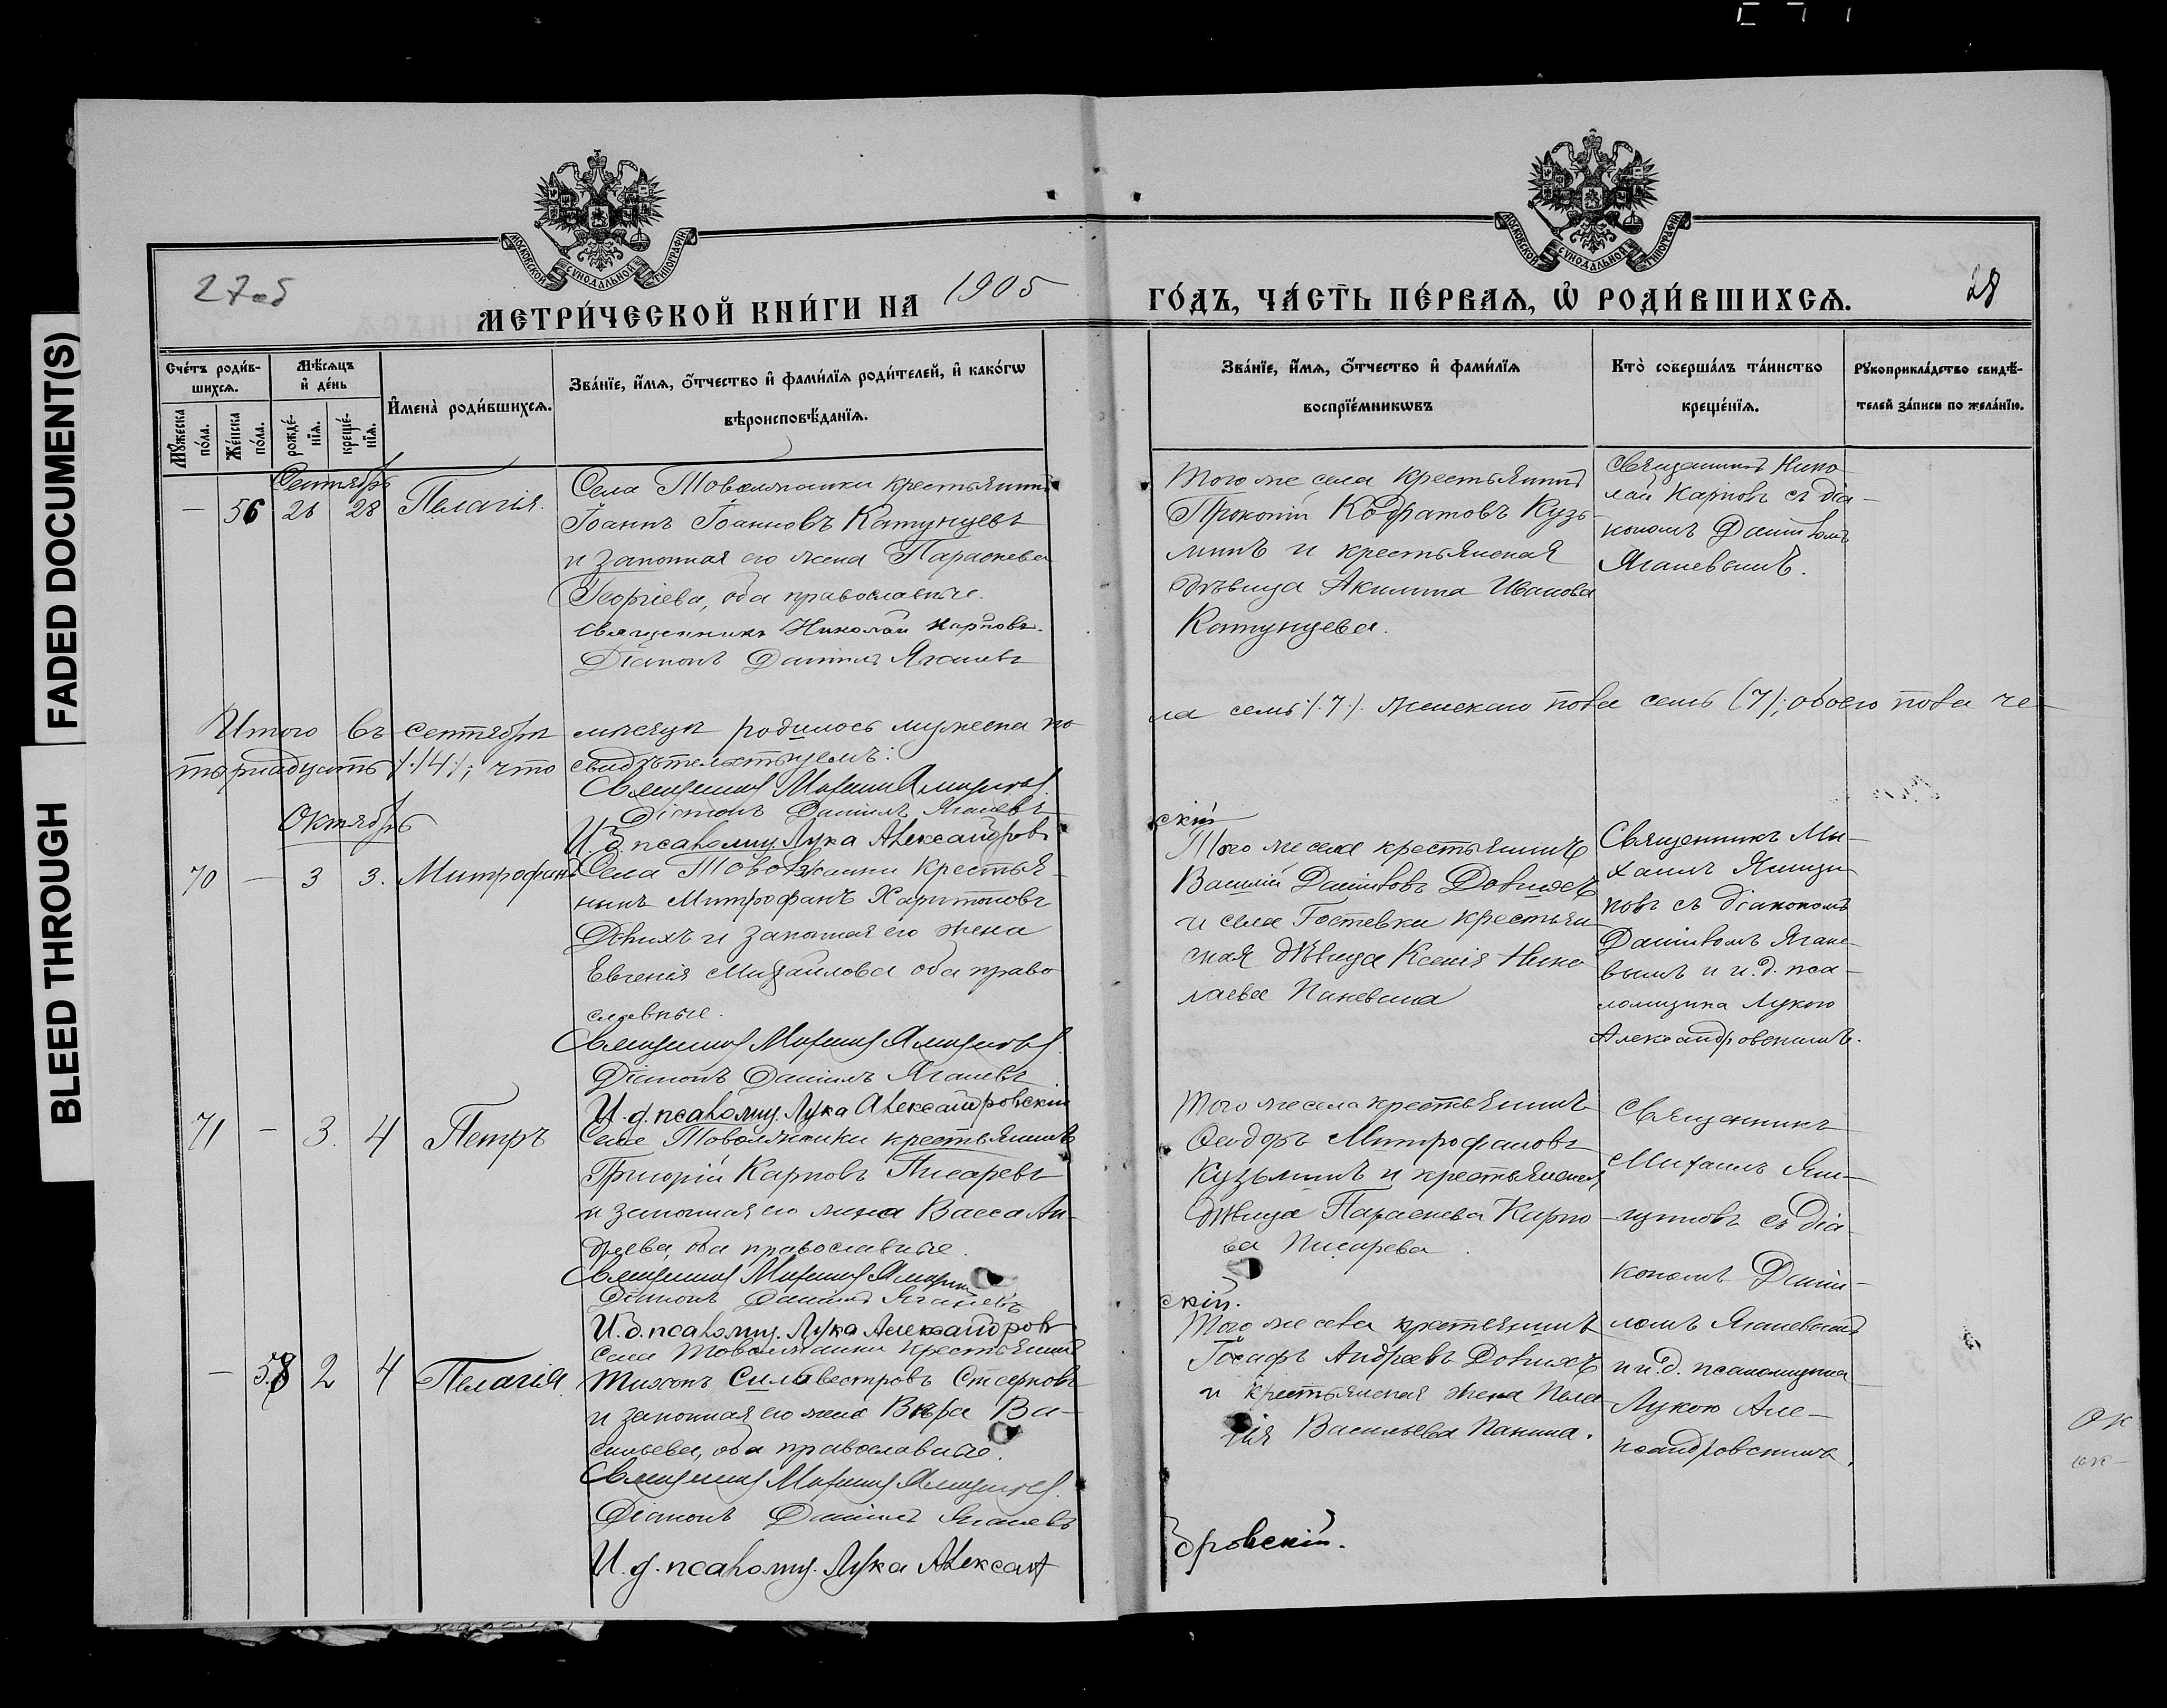 FADED DOCUMENT(S)
BLEED THROUGH
27об
28
МОСКОВСКОЙ СѴНОДАЛЬНОЙ ТИПОГРАФІИ
МОСКОВСКОЙ СѴНОДАЛЬНОЙ ТИПОГРАФІИ
МЕТРИ́ЧЕСКОЙ КНИ́ГИ НА 1905 ГО́ДЪ, ЧА́СТЬ ПЕ́РВАѦ, Ѡ РОДИ́ВШИХСѦ.
Сче́тъ роди́в-
шихсѧ.
Мꙋ́жеска
по́ла.
Же́нска
по́ла.
Мѣ́сѧцъ
и де́нь
рожде́-
нїѧ.
креще́-
нїѧ.
Имена̀ роди́вшихсѧ.
Зва́нїе, и́мѧ, о́тчество и фами́лїѧ роди́телей, и како́гѡ
вѣроисповѣ́данїѧ.
Зва́нїе, и́мѧ, о́тчество и фами́лїѧ
воспрїе́мникѡвъ
Кто̀ соверша́лъ та́инство
креще́нїѧ.
Рꙋкоприкла́дство свидѣ́-
телей за́писи по жела́нїю.
Сентябрь
— 56 28 Пелагія.
Села Товолжанки крестьянинъ
Іоаннъ Іоанновъ Катунцевъ
и законная его жена Параскева
Георгіева, оба православные.
Священникъ Николай Карповъ.
Діаконъ Даниилъ Яганевъ
Того же села крестьянинъ
Прокопій Кодратовъ Кузь-
минъ и крестьянская
дѣвица Акилина Иванова
Катунцева.
Священникъ Нико-
лай Карповъ съ діа-
кономъ Даниіломъ
Яганевымъ.
Итого въ сентябрѣ мѣсяцѣ родилось мужеска по
ла семь /.7./. женскаго пола семь (7); обоего пола че-
тырнадцать /.14./; что свидѣтельствуемъ:
Священникъ Михаилъ
Діаконъ Даниилъ Яганевъ
И. д. псаломщ. Лука Александров
скій
Октябрь
70 — 3 3. Митрофанъ
Села Товолжанки крестья-
нинъ Митрофанъ Харитоновъ
Довихъ и законная его жена
Евгенія Михайлова оба право
славные.
Священникъ Михаилъ
Діаконъ Даниилъ Яганевъ
И. д. псаломщ. Лука Александровскій
Того же села крестьянинъ
Василій Даниловъ Довихъ
и села Гостевки крестьян
ская дѣвица Ксенія Нико
лаева
Священникъ Ми-
хаилъ
новъ съ діакономъ
Даниіломъ Ягане-
вымъ и и. д. пса-
ломщика Лукою
Александровскимъ.
71 — 3. 4 Петръ
Села Товолжанки крестьянинъ
Григорій Карповъ Писаревъ
и законная его жена Васса Ан-
дреева, оба православные.
Священникъ Михаилъ
Діаконъ Даниилъ Яганевъ
И. д. псаломщ. Лука Александров
скій.
Того же села крестьянинъ
Ѳеодоръ Митрофановъ
Кузьминъ и крестьянская
дѣвица Параскева Карпо-
ва Писарева.
Священникъ
Михаилъ
съ діа-
кономъ Даніи-
ломъ Яганевымъ
и и. д. псаломщика
Лукою Але-
ксандровскимъ.
— 58 2 4 Пелагія.
Села Товолжанки крестьянинъ
Тихонъ Сильвестровъ
и законная его жена Вѣра Ва-
сильева, оба православные.
Священникъ Михаилъ
Діаконъ Даниилъ Яганевъ
И. д. псаломщ. Лука Алексан
дровскій.
Того же села крестьянинъ
Іосафъ Андреевъ Довихъ
и крестьянская жена Пела
гія Васильева Панина.